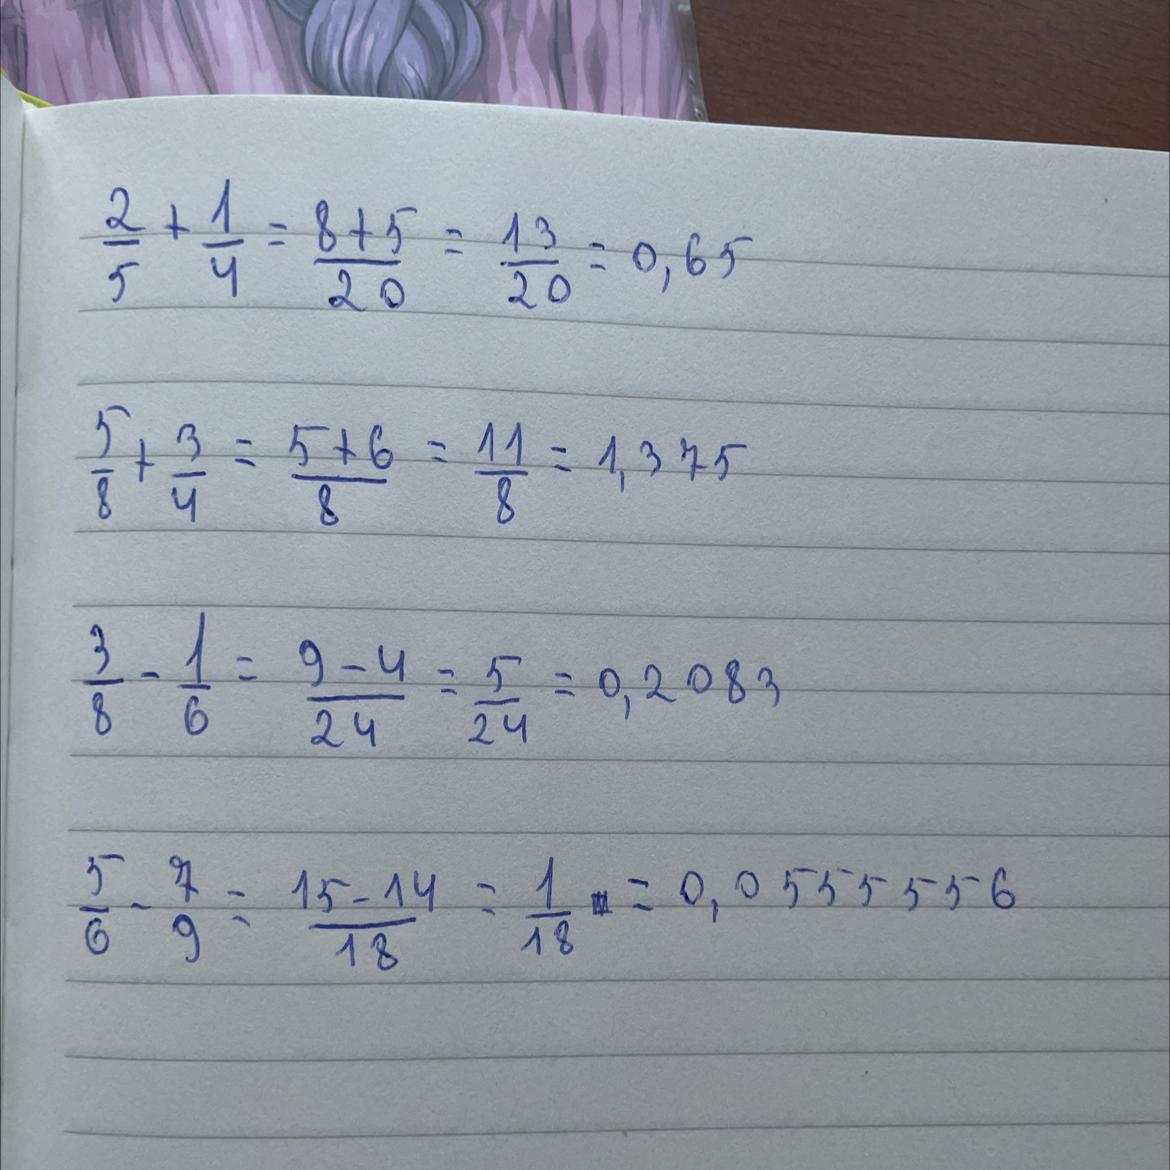 2/5 + 1/4 = (8+5)/20 = 13/20 = 0,65
5/8 + 3/4 = (5+6)/8 = 11/8 = 1,375
3/8 - 1/6 = (9-4)/24 = 5/24 = 0,2083
5/6 - 7/9 = (15-14)/18 = 1/18 = 0,0555556